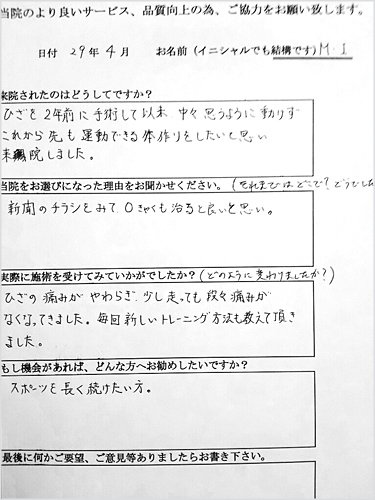 当院のより良いサービス、品質向上の為、ご協力をお願い致します。
日付 29年4月 お名前(イニシャルでも結構です) M・I
来院されたのはどうしてですか?
ひざを2年前に手術して以来 中々思うように動けず
これから先も運動できる体作りをしたいと思い
来院しました。
当院をお選びになった理由をお聞かせください。(それまではどこで?どうした
新聞のチラシをみて、O きゃくも治ると良いと思い。
実際に施術を受けてみていかがでしたか?(どのように変わりましたか?)
ひざの痛みがやわらぎ、少し走っても段々痛みが
なくなってきました。毎回新しいトレーニング方法も教えて頂き
ました。
もし機会があれば、どんな方へお勧めしたいですか?
スポーツを長く続けたい方。
最後に何かご要望、ご意見等ありましたらお書き下さい。